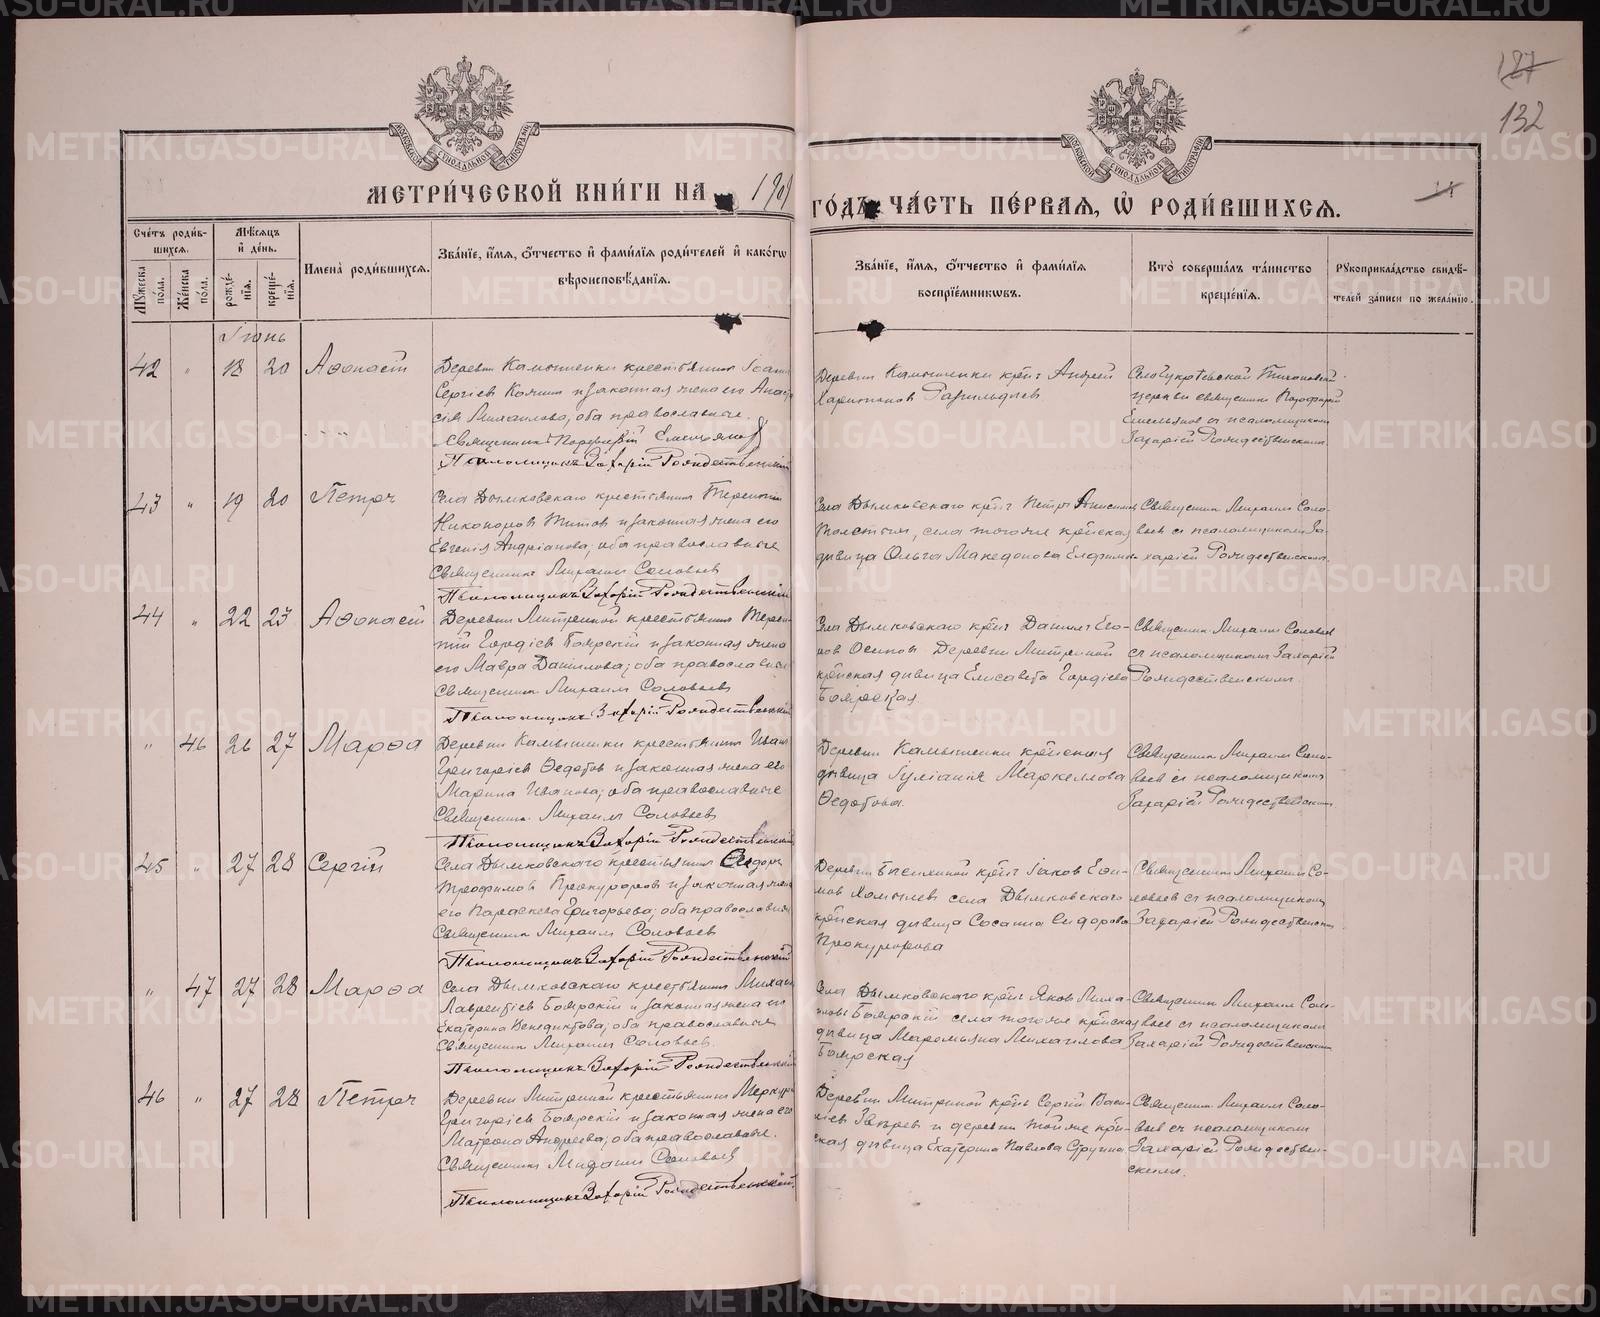 127
132
МЕТРИ́ЧЕСКОЙ КНИ́ГИ НА 1909
ГО́ДЪ ЧА́СТЬ ПЕ́РВАЯ, Ѿ РОДИ́ВШИХСЯ.
11
Сче́тъ роди́в-
шихся.
Мѣ́сяцъ
и҆ де́нь.
Му́жеска по́ла.
Же́нска по́ла.
рожде́-
нїя.
креще́-
нїя.
И҆мена̀ роди́вшихся.
Зва́нїе, и҆́мя, ѻ҆́тчество и҆ фами́лїя роди́телей и҆ како́гѡ
вѣроисповѣ́данїя.
Зва́нїе, и҆́мя, ѻ҆́тчество и҆ фами́лїя
воспрїе́мникѡвъ.
Кто̀ соверша́лъ та́инство
креще́нїя.
Рукоприкла́дство свидѣ́-
телей за́писи по жела́нїю.
Іюнь
42 " 18 20 Аѳонасій
Деревни Камышенки крестьянинъ Іоаннъ
Сергіевъ и законная жена его Анаста-
сія Михаилова, оба православные.
Священникъ Порфирій Емельяновъ
Псаломщикъ Захарій Рождественскій
Деревни Камышенки крест. Андрей
Харитоновъ
Тихоновской
церкви священникъ Порфирій
Емельяновъ съ псаломщикомъ
Захаріей Рождественскимъ
43 " 19 20 Петръ
Села Дымковскаго крестьянинъ Терентій
Никоноровъ Титовъ и законная жена его
Евгенія Андріанова; оба православные
Священникъ Михаилъ Соловьевъ
Псаломщикъ Захарій Рождественскій
Села Дымковскаго крест. Петръ Анисимовъ
села того же крестьянская
дѣвица Ольга Македонова
Священникъ Михаилъ Соло-
вьевъ съ псаломщикомъ За-
харіей Рождественскимъ.
44 " 22 23 Аѳонасій
Деревни Митриной крестьянинъ Терен-
тій Гордіевъ Боярскій и законная жена
его Мавра Данилова; оба православные
Священникъ Михаилъ Соловьевъ
Псаломщикъ Захарій Рождественскій
Села Дымковскаго крест. Даниилъ Его-
ровъ Осиповъ Деревни Митриной
крестьянская дѣвица Елисавета Гордіева
Боярская
Священникъ Михаилъ Соловьевъ
съ псаломщикомъ Захаріей
Рождественскимъ.
" 46 26 27 Марѳа
Деревни Камышенки крестьянинъ Иванъ
Григоріевъ Ѳедотовъ и законная жена его
Марина Иванова; оба православные
Священникъ Михаилъ Соловьевъ
Псаломщикъ Захарій Рождественскій
Деревни Камышенки крестьянская
дѣвица Іуліанія Маркеллова
Ѳедотова.
Священникъ Михаилъ Соло-
вьевъ съ псаломщикомъ
Захаріей Рождественскимъ
45 " 27 28 Сергій
Села Дымковскаго крестьянинъ Сидоръ
Трофимовъ Прокуроровъ и законная жена
его Параскева Григорьева; оба православные
Священникъ Михаилъ Соловьевъ
Псаломщикъ Захарій Рождественскій
крест. Іаковъ Ефи-
мовъ села Дымковскаго
крестьянская дѣвица Сосанна Сидорова
Прокуророва
Священникъ Михаилъ Со-
ловьевъ съ псаломщикомъ
Захаріей Рождественскимъ
" 47 27 28 Марѳа
Села Дымковскаго крестьянинъ Михаилъ
Лаврентіевъ Боярскій и законная жена его
Екатерина Венедиктова; оба православные
Священникъ Михаилъ Соловьевъ.
Псаломщикъ Захарій Рождественскій
Села Дымковскаго крест. Яковъ Миха-
иловъ Боярскій села того же крестьянская
дѣвица Маремьяна Михаилова
Боярская
Священникъ Михаилъ Соло-
вьевъ съ псаломщикомъ
Захаріей Рождественскимъ
46 " 27 28 Петръ
Деревни Митриной крестьянинъ Меркурій
Григоріевъ Боярскій и законная жена его
Матрона Андреева; оба православные.
Священникъ Михаилъ Соловьевъ
Псаломщикъ Захарій Рождественскій
Деревни Митриной крест. Сергій Васи-
ліевъ Звѣревъ и деревни той же крестьян-
ская дѣвица Екатерина Павлова
Священникъ Михаилъ Соло-
вьевъ съ псаломщикомъ
Захаріей Рождествен-
скимъ.
METRIKI.GASO-URAL.RU